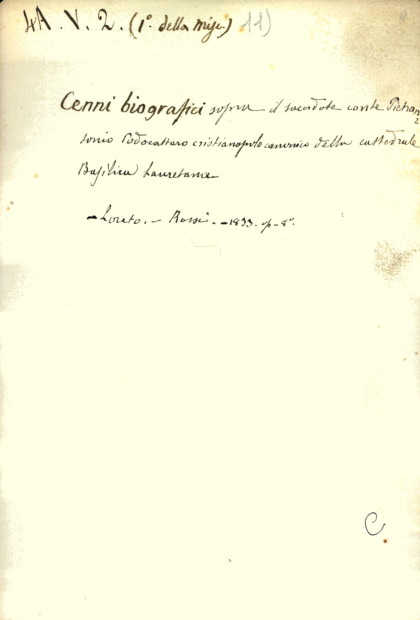 4A. V. 2. (1º. della Misc.) 11)
Cenni biografici sopra il sacerdote conte Pietran
tonio Podocattaro cristianopolo canonico della cattedrale
Basilica Lauretana
- Loreto. - Rossi. - 1833. op - 8º.
C